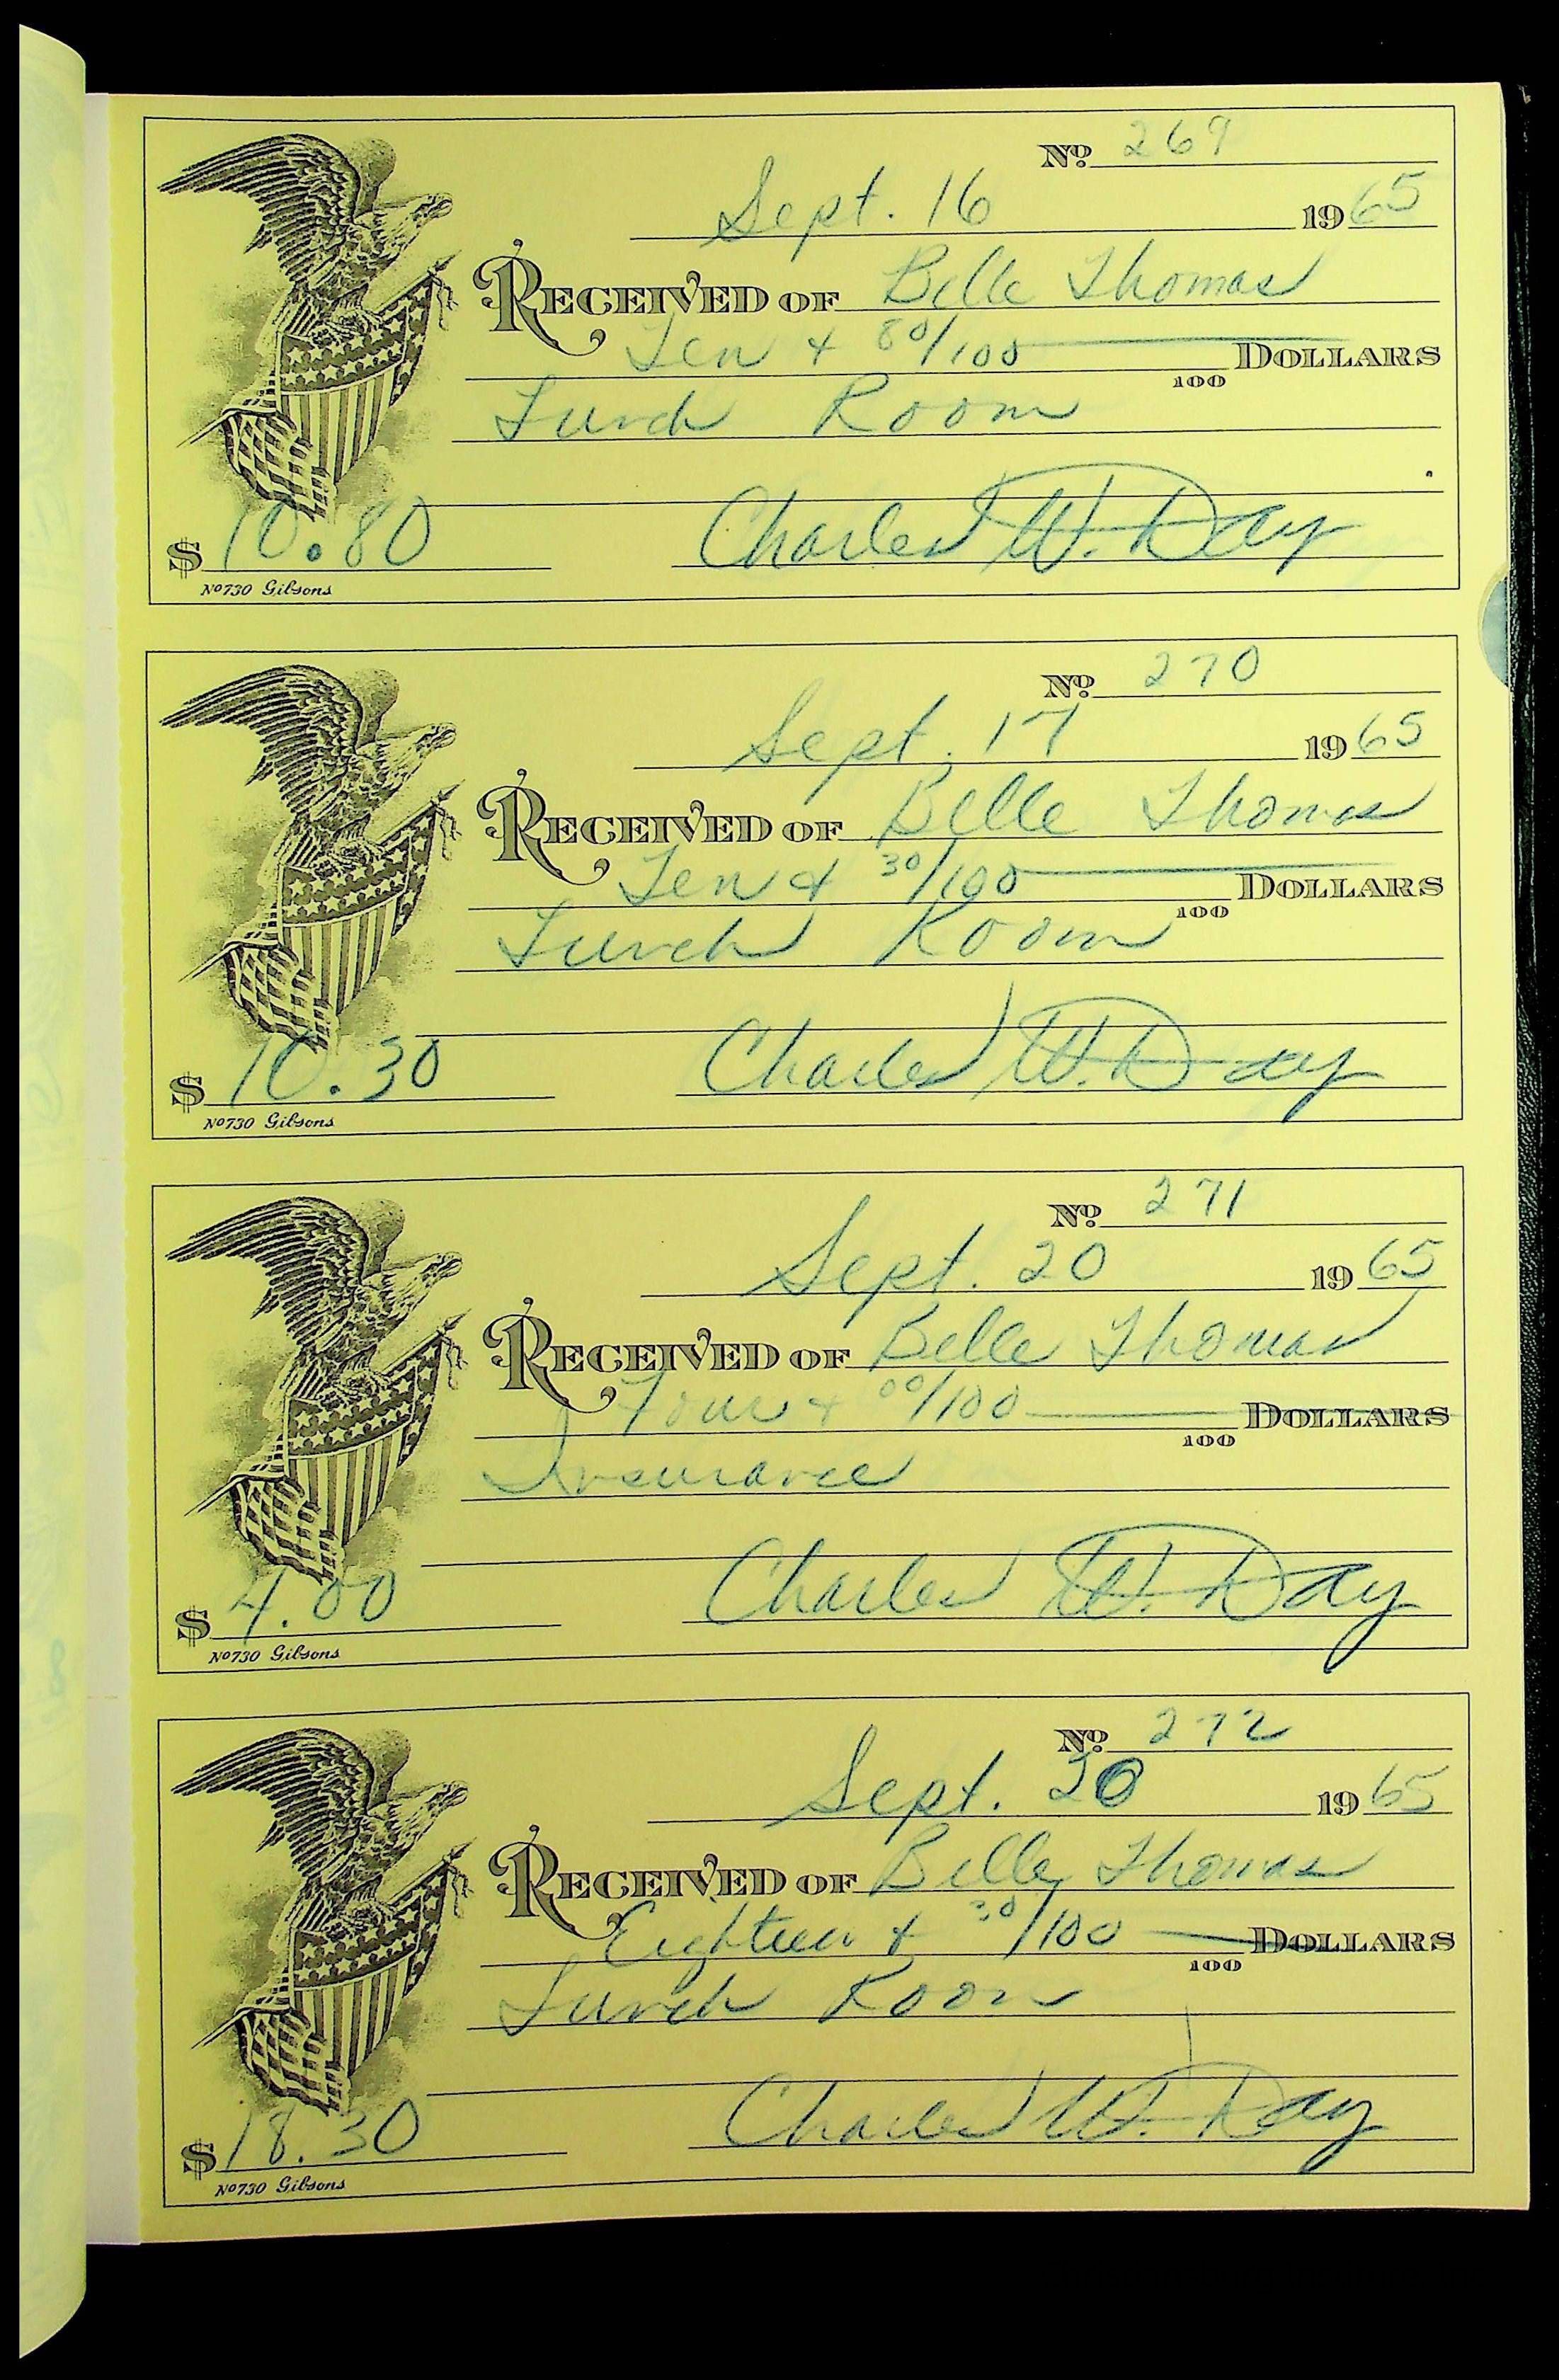 Nº 269
Sept. 16 1965
RECEIVED OF Belle Thomas
Ten & 80/100 DOLLARS
100
Lunch Room
$ 10.80 Charles W. Day
Nº 730 Gibsons
Nº 270
Sept. 17 1965
RECEIVED OF Belle Thomas
Ten & 30/100 DOLLARS
100
Lunch Room
$ 10.30 Charles W. Day
Nº 730 Gibsons
Nº 271
Sept. 20 1965
RECEIVED OF Belle Thomas
Four & 00/100 DOLLARS
100
Insurance
$ 4.00 Charles W. Day
Nº 730 Gibsons
Nº 272
Sept. 20 1965
RECEIVED OF Belle Thomas
Eighteen & 30/100 DOLLARS
100
Lunch Room
$ 18.30 Charles W. Day
Nº 730 Gibsons